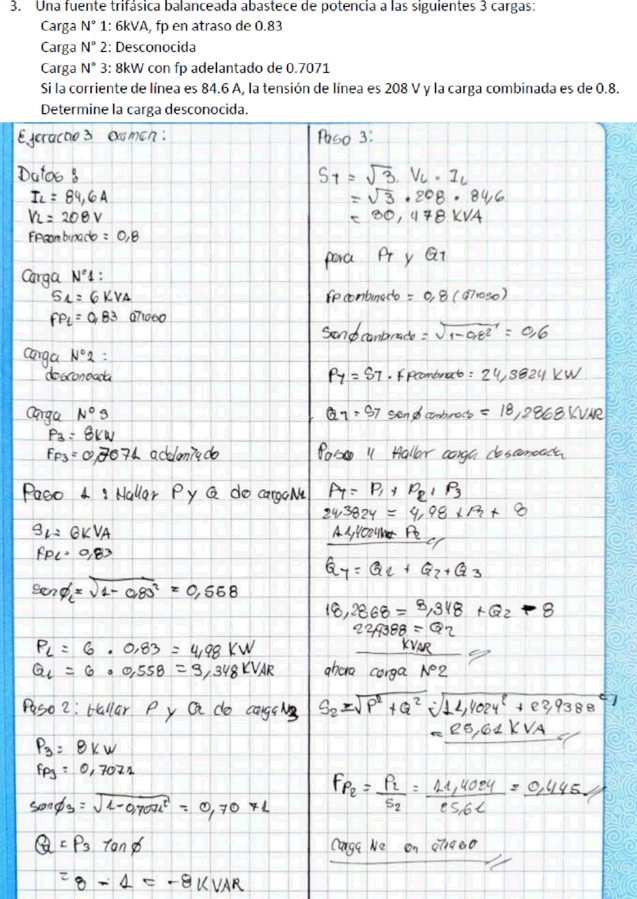 3. Una fuente trifásica balanceada abastece de potencia a las siguientes 3 cargas:
Carga N° 1: 6kVA, fp en atraso de 0.83
Carga N° 2: Desconocida
Carga N° 3: 8kW con fp adelantado de 0.7071
Si la corriente de línea es 84.6 A, la tensión de línea es 208 V y la carga combinada es de 0.8.
Determine la carga desconocida.
Ejercicio 3 examen:
Datos:
IL = 84,6 A
VL = 208 V
Fpcombinado = 0,8
Carga N°1:
S1 = 6 KVA
FP1 = 0,83 atraso
Carga N°2:
desconocida
Carga N°3
P3 = 8KW
FP3 = 0,7071 adelantado
Paso 1: Hallar P y Q de carga N1
S1 = 6KVA
FP1 = 0,83
senϕ1 = √1-0,83² = 0,558
P1 = 6 . 0,83 = 4,98 KW
Q1 = 6 . 0,558 = 3,348 KVAR
Paso 2: Hallar P y Q de carga N3
P3 = 8 KW
FP3 = 0,7071
senϕ3 = √1-0,7071² = 0,7071
Q = P3 Tanϕ
= 8 - 1 = -8 KVAR
Paso 3:
ST = √3 . VL . IL
= √3 . 208 . 84,6
= 30,478 KVA
para PT y QT
FP combinado = 0,8 (atraso)
Senϕ combinado = √1-0,8² = 0,6
PT = ST . Fpcombinado = 24,3824 KW
QT = ST senϕ combinado = 18,2868 KVAR
Paso 4 Hallar carga desconocida
PT = P1 + P2 + P3
24,3824 = 4,98 + P2 + 8
11,4024 = P2
QT = Q1 + Q2 + Q3
18,2868 = 3,348 + Q2 - 8
22,9388 = Q2
KVAR
ahora carga N°2
S2 = √P² + Q² = √11,4024² + 22,9388²
= 25,61 KVA
FP2 = P2/S2 = 11,4024/25,61 = 0,445
Carga N2 en atraso